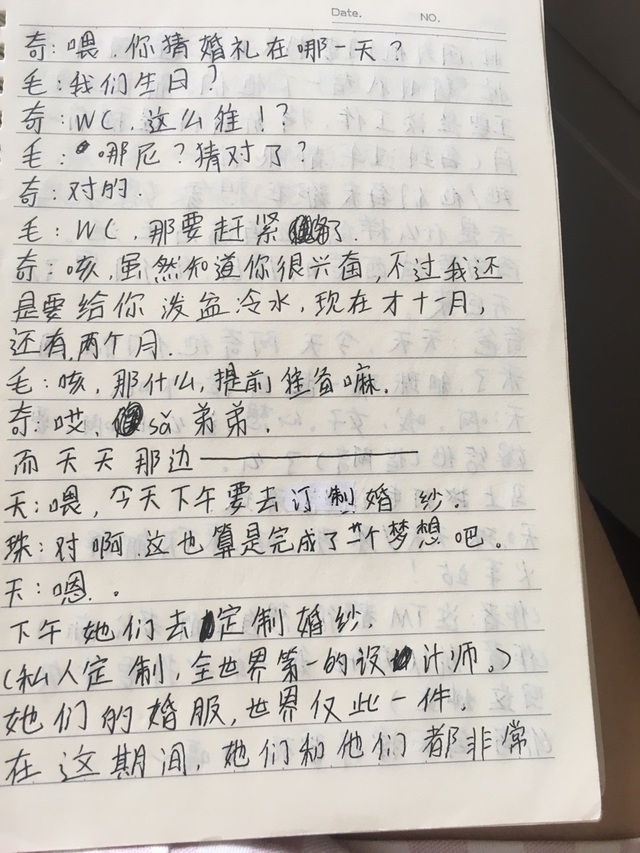 Date.
NO.
奇:喂,你猜婚礼在哪一天?
毛:我们生日?
奇:WC,这么准!?
毛:哪尼?猜对了?
奇:对的.
毛:WC,那要赶紧了.
奇:咳,虽然知道你很兴奋,不过我还
是要给你泼盆冷水,现在才十一月,
还有两个月.
毛:咳,那什么,提前准备嘛.
奇:哎,sǎ弟弟.
而天天那边————
天:喂,今天下午要去订制婚纱.
珠:对啊.这也算是完成了一个梦想吧。
天:嗯。
下午她们去定制婚纱.
(私人定制,全世界第一的设计师。)
她们的婚服,世界仅此一件.
在这期间,她们和他们都非常